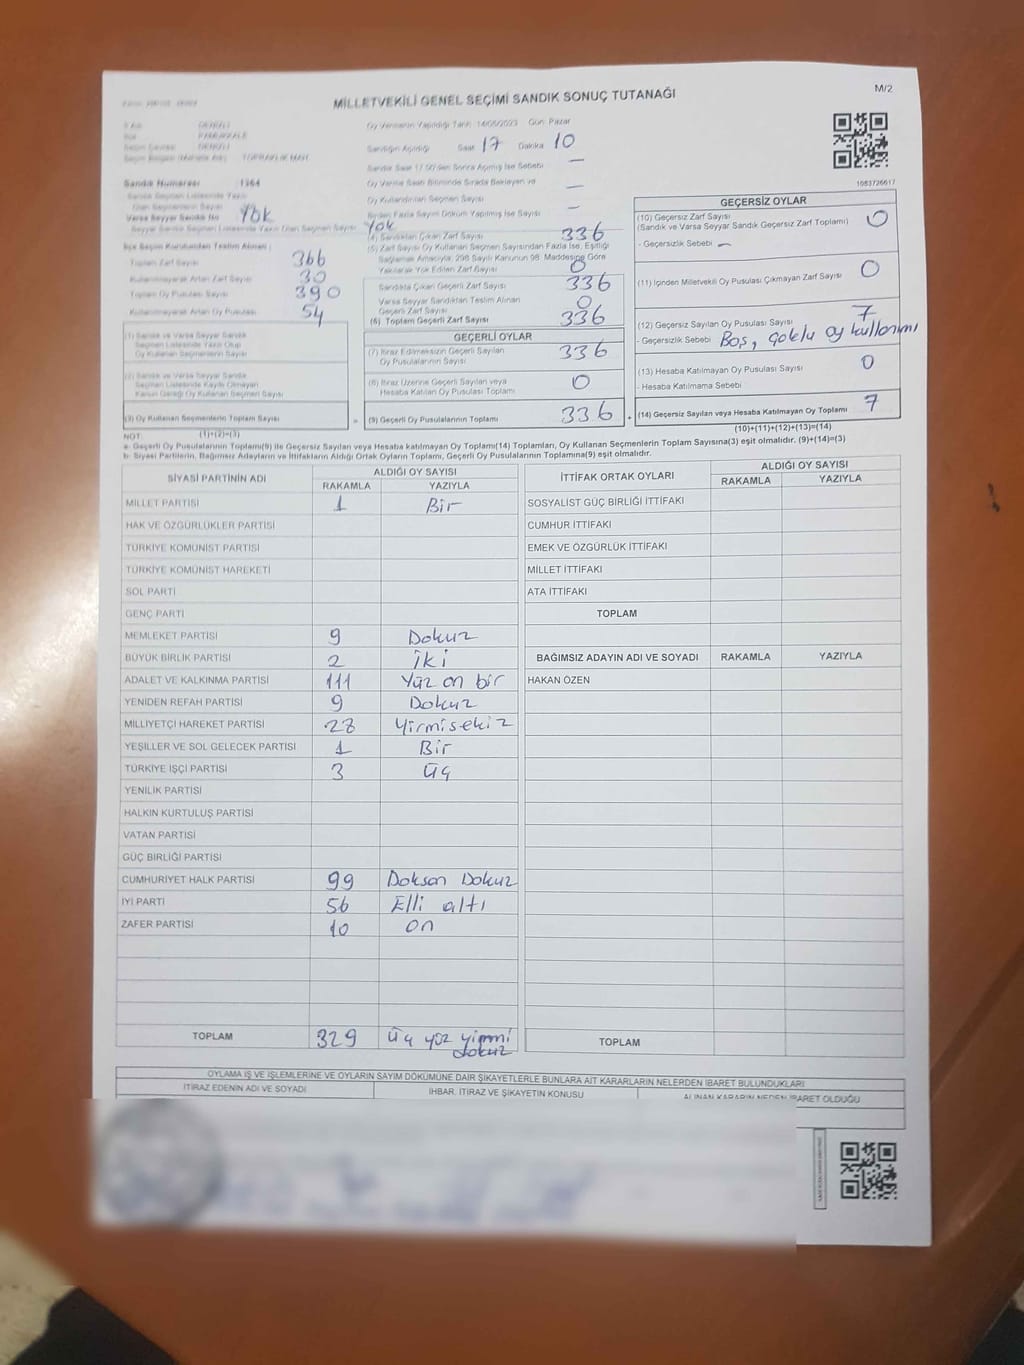 MİLLETVEKİLİ GENEL SEÇİMİ SANDIK SONUÇ TUTANAĞI
M/2
Oy Vermenin Yapıldığı Tarih: 14/05/2023 Gün: Pazar
Sandığın Açıldığı Saat 17 Dakika 10
Sandık Saat 17.00'den Sonra Açılmış İse Sebebi —
Oy Verme Saati Bitiminde Sırada Bekleyen ve
Oy Kullandırılan Seçmen Sayısı —
Birden Fazla Sayım Döküm Yapılmış İse Sayısı —
DENİZLİ
PAMUKKALE
DENİZLİ
Sandık Numarası 1364
Sandık Seçmen Listesinde Yazılı
Olan Seçmen Sayısı
Varsa Seyyar Sandık No Yok
Seyyar Sandık Seçmen Listesinde Yazılı Olan Seçmen Sayısı Yok
İlçe Seçim Kurulundan Teslim Alınan:
Toplam Zarf Sayısı 366
Kullanılmayarak Artan Zarf Sayısı 30
Toplam Oy Pusulası Sayısı 390
Kullanılmayarak Artan Oy Pusulası 54
(1) Sandık ve Varsa Seyyar Sandık
Seçmen Listesinde Yazılı Olup
Oy Kullanan Seçmenlerin Sayısı
(2) Sandık ve Varsa Seyyar Sandık
Seçmen Listesinde Kayıtlı Olmayan
Kanun Gereği Oy Kullanan Seçmen Sayısı
(3) Oy Kullanan Seçmenlerin Toplam Sayısı
(4) Sandıktan Çıkan Zarf Sayısı 336
(5) Zarf Sayısı Oy Kullanan Seçmen Sayısından Fazla İse, Eşitliği
Sağlamak Amacıyla, 298 Sayılı Kanunun 98. Maddesine Göre
Yakılarak Yok Edilen Zarf Sayısı 0
Sandıkta Çıkan Geçerli Zarf Sayısı 336
Varsa Seyyar Sandıktan Teslim Alınan
Geçerli Zarf Sayısı 0
(6) Toplam Geçerli Zarf Sayısı 336
GEÇERLİ OYLAR
(7) İtiraz Edilmeksizin Geçerli Sayılan
Oy Pusulalarının Sayısı 336
(8) İtiraz Üzerine Geçerli Sayılan veya
Hesaba Katılan Oy Pusulası Toplamı 0
= (9) Geçerli Oy Pusulalarının Toplamı 336
1083726617
GEÇERSİZ OYLAR
(10) Geçersiz Zarf Sayısı
(Sandık ve Varsa Seyyar Sandık Geçersiz Zarf Toplamı) 0
- Geçersizlik Sebebi —
(11) İçinden Milletvekili Oy Pusulası Çıkmayan Zarf Sayısı 0
(12) Geçersiz Sayılan Oy Pusulası Sayısı 7
- Geçersizlik Sebebi Boş, çoklu oy kullanımı
(13) Hesaba Katılmayan Oy Pusulası Sayısı 0
- Hesaba Katılmama Sebebi
+ (14) Geçersiz Sayılan veya Hesaba Katılmayan Oy Toplamı 7
NOT: (1)+(2)=(3)
(10)+(11)+(12)+(13)=(14)
a- Geçerli Oy Pusulalarının Toplamı(9) ile Geçersiz Sayılan veya Hesaba katılmayan Oy Toplamı(14) Toplamları, Oy Kullanan Seçmenlerin Toplam Sayısına(3) eşit olmalıdır. (9)+(14)=(3)
b- Siyasi Partilerin, Bağımsız Adayların ve İttifakların Aldığı Oyların Toplamı, Geçerli Oy Pusulalarının Toplamına(9) eşit olmalıdır.
SİYASİ PARTİNİN ADI
ALDIĞI OY SAYISI
RAKAMLA YAZIYLA
MİLLET PARTİSİ 1 Bir
HAK VE ÖZGÜRLÜKLER PARTİSİ
TÜRKİYE KOMÜNİST PARTİSİ
TÜRKİYE KOMÜNİST HAREKETİ
SOL PARTİ
GENÇ PARTİ
MEMLEKET PARTİSİ 9 Dokuz
BÜYÜK BİRLİK PARTİSİ 2 iki
ADALET VE KALKINMA PARTİSİ 111 Yüz on bir
YENİDEN REFAH PARTİSİ 9 Dokuz
MİLLİYETÇİ HAREKET PARTİSİ 28 Yirmisekiz
YEŞİLLER VE SOL GELECEK PARTİSİ 1 Bir
TÜRKİYE İŞÇİ PARTİSİ 3 Üç
YENİLİK PARTİSİ
HALKIN KURTULUŞ PARTİSİ
VATAN PARTİSİ
GÜÇ BİRLİĞİ PARTİSİ
CUMHURİYET HALK PARTİSİ 99 Doksan Dokuz
İYİ PARTİ 56 Elli altı
ZAFER PARTİSİ 10 on
TOPLAM 329 Üç yüz yirmi
dokuz
İTTİFAK ORTAK OYLARI
ALDIĞI OY SAYISI
RAKAMLA YAZIYLA
SOSYALİST GÜÇ BİRLİĞİ İTTİFAKI
CUMHUR İTTİFAKI
EMEK VE ÖZGÜRLÜK İTTİFAKI
MİLLET İTTİFAKI
ATA İTTİFAKI
TOPLAM
BAĞIMSIZ ADAYIN ADI VE SOYADI RAKAMLA YAZIYLA
HAKAN ÖZEN
TOPLAM
OYLAMA İŞ VE İŞLEMLERİNE VE OYLARIN SAYIM DÖKÜMÜNE DAİR ŞİKAYETLERLE BUNLARA AİT KARARLARIN NELERDEN İBARET BULUNDUKLARI
İTİRAZ EDENİN ADI VE SOYADI
İHBAR, İTİRAZ VE ŞİKAYETİN KONUSU
ALINAN KARARIN NEDEN İBARET OLDUĞU